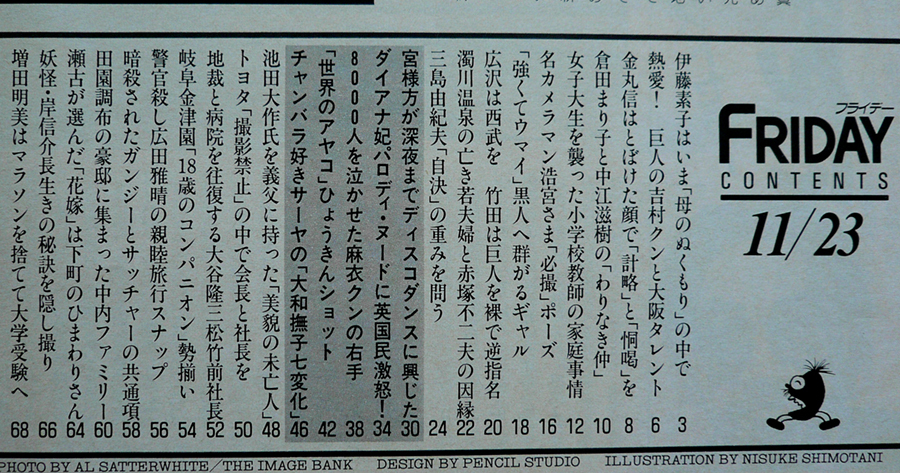 フライデー
FRIDAY
CONTENTS
11/23
伊藤素子はいま「母のぬくもり」の中で 3
熱愛! 巨人の吉村クンと大阪タレント 6
金丸信はとぼけた顔で「計略」と「恫喝」を 8
倉田まり子と中江滋樹の「わりなき仲」 10
女子大生を襲った小学校教師の家庭事情 12
名カメラマン浩宮さま「必撮」ポーズ 16
「強くてウマイ」黒人へ群がるギャル 18
広沢は西武を 竹田は巨人を裸で逆指名 20
濁川温泉の亡き若夫婦と赤塚不二夫の因縁 22
三島由紀夫「自決」の重みを問う 24
宮様方が深夜までディスコダンスに興じた 30
ダイアナ妃パロディ・ヌードに英国民激怒! 34
8000人を泣かせた麻衣クンの右手 38
「世界のアヤコ」ひょうきんショット 42
チャンバラ好きサーヤの「大和撫子七変化」 46
池田大作氏を義父に持った「美貌の未亡人」 48
トヨタ「撮影禁止」の中で会長と社長を 50
地裁と病院を往復する大谷隆三松竹前社長 52
岐阜金津園「18歳のコンパニオン」勢揃い 54
警官殺し広田雅晴の親睦旅行スナップ 56
暗殺されたガンジーとサッチャーの共通項 58
田園調布の豪邸に集まった中内ファミリー 60
瀬古が選んだ「花嫁」は下町のひまわりさん 64
妖怪・岸信介長生きの秘訣を隠し撮り 66
増田明美はマラソンを捨てて大学受験へ 68
PHOTO BY AL SATTERWHITE/THE IMAGE BANK DESIGN BY PENCIL STUDIO ILLUSTRATION BY NISUKE SHIMOTANI